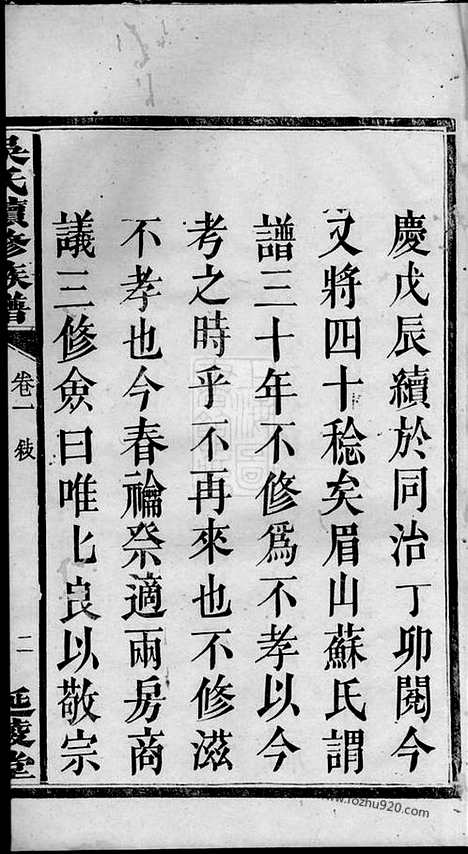 慶戊辰續於同治丁卯閱今
又將四十稔矣眉山蘇氏謂
譜三十年不修爲不孝以今
考之時乎不再來也不修滋
不孝也今春禴祭適兩房商
議三修僉曰唯匕良以敬宗
吳氏續修族譜
卷一敍
二
延陵堂
www.1ozhu920.com